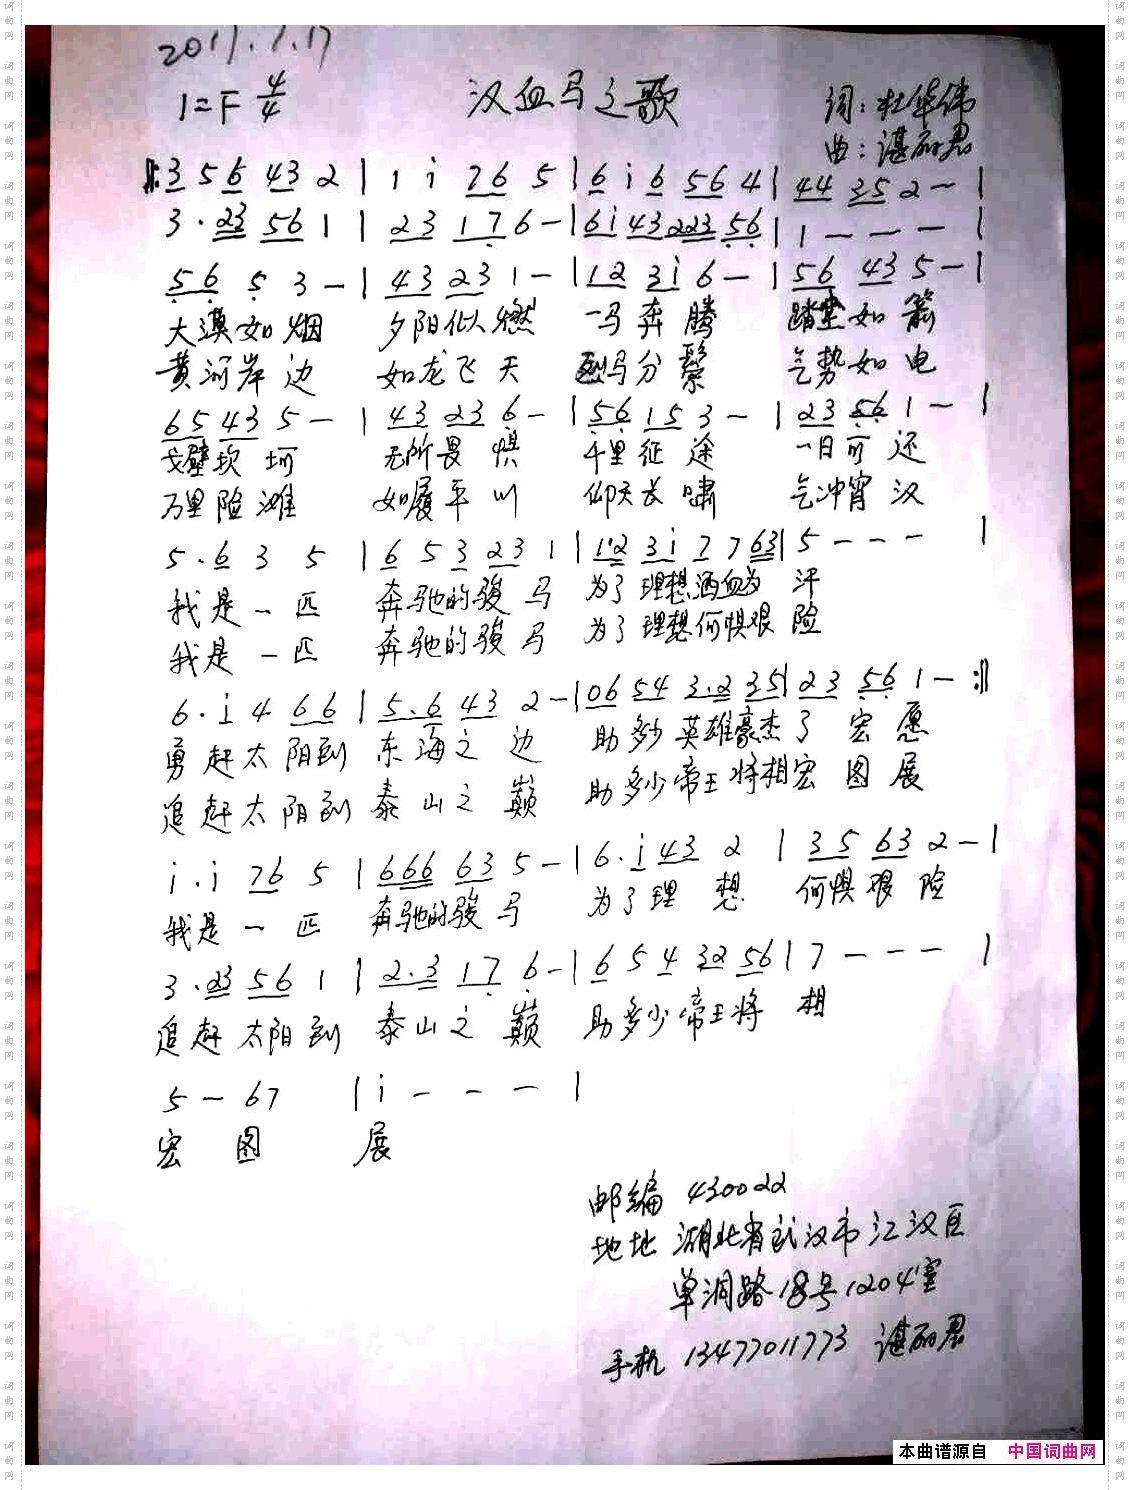 2011.7.17
1=F 4/4 汉血马之歌 词:杜华伟
曲:谌丽君
‖: 3 5 6 43 2 | 1 i 76 5 | 6 i 6 56 4 | 44 35 2 - |
3 · 23 56 1 | 23 17 6 - | 6i 43 223 56 | 1 - - - |
56 5 3 - | 43 23 1 - | 12 3i 6 - | 56 43 5 - |
大漠如烟 夕阳似火燃 一马奔腾 踏尘如箭
黄河岸边 如龙飞天 烈马分鬃 气势如电
65 43 5 - | 43 23 6 - | 56 15 3 - | 23 56 1 - |
戈壁坎坷 无所畏惧 千里征途 一日可还
万里险滩 如履平川 仰天长啸 气冲霄汉
5 · 6 3 5 | 6 5 3 23 1 | 1·2 3i 7 7 63 | 5 - - - |
我是一匹 奔驰的骏马 为了理想洒血为汗
我是一匹 奔驰的骏马 为了理想何惧艰险
6 · i 4 66 | 5·6 43 2 - | 06 54 3·2 35 | 23 56 1 - :‖
勇赶太阳到 东海之边 助多少英雄豪杰了宏愿
追赶太阳到 泰山之巅 助多少帝王将相宏图展
i · i 76 5 | 666 63 5 - | 6 · i 43 2 | 35 63 2 - |
我是一匹 奔驰的骏马 为了理想 何惧艰险
3 · 23 56 1 | 2·3 17 6 - | 6 5 4 32 56 | 7 - - - |
追赶太阳到 泰山之巅 助多少帝王将相
5 - 67 | i - - - |
宏图展
邮编 430022
地址 湖北省武汉市江汉区
单洞路18号1204室
手机 13477011773 谌丽君
本曲谱源自 中国词曲网